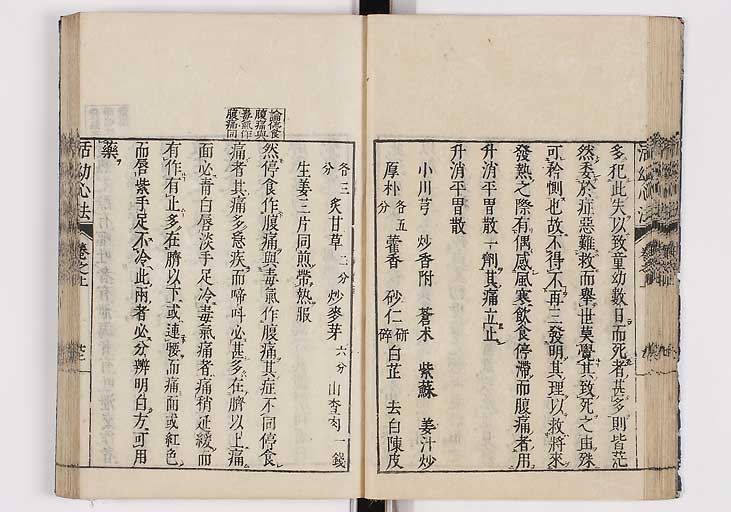 多犯此失以致童幼數日而死者甚多則皆茫
然委於症惡難救而舉世莫覺其致死之由殊
可矜惻也故不得不再三發明其理以救將來
發熱之際有偶感風寒飲食停滯而腹痛者用
升消平胃散一劑其痛立止
升消平胃散
小川芎 炒香附 蒼术 紫蘇 姜汁炒
厚朴各五分 藿香 砂仁研碎 白芷 去白陳皮
各三分 炙甘草二分 炒麥芽六分 山查肉一錢
生姜三片同煎帶熱服
論停食
腹痛與
毒氣作
腹痛同
然停食作腹痛與毒氣作腹痛其症不同停食
痛者其痛多急疾而啼呌必甚多在臍以上痛
面必青白唇淡手足冷毒氣痛者痛稍延緩而
有作有止多在臍以下或連腰而痛面或紅色
而唇紫手足不冷此兩者必分辨明白方可用
藥
活幼心法 卷之上